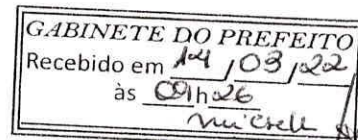 GABINETE DO PREFEITO
Recebido em 14 / 03 / 22
às 09 h 26